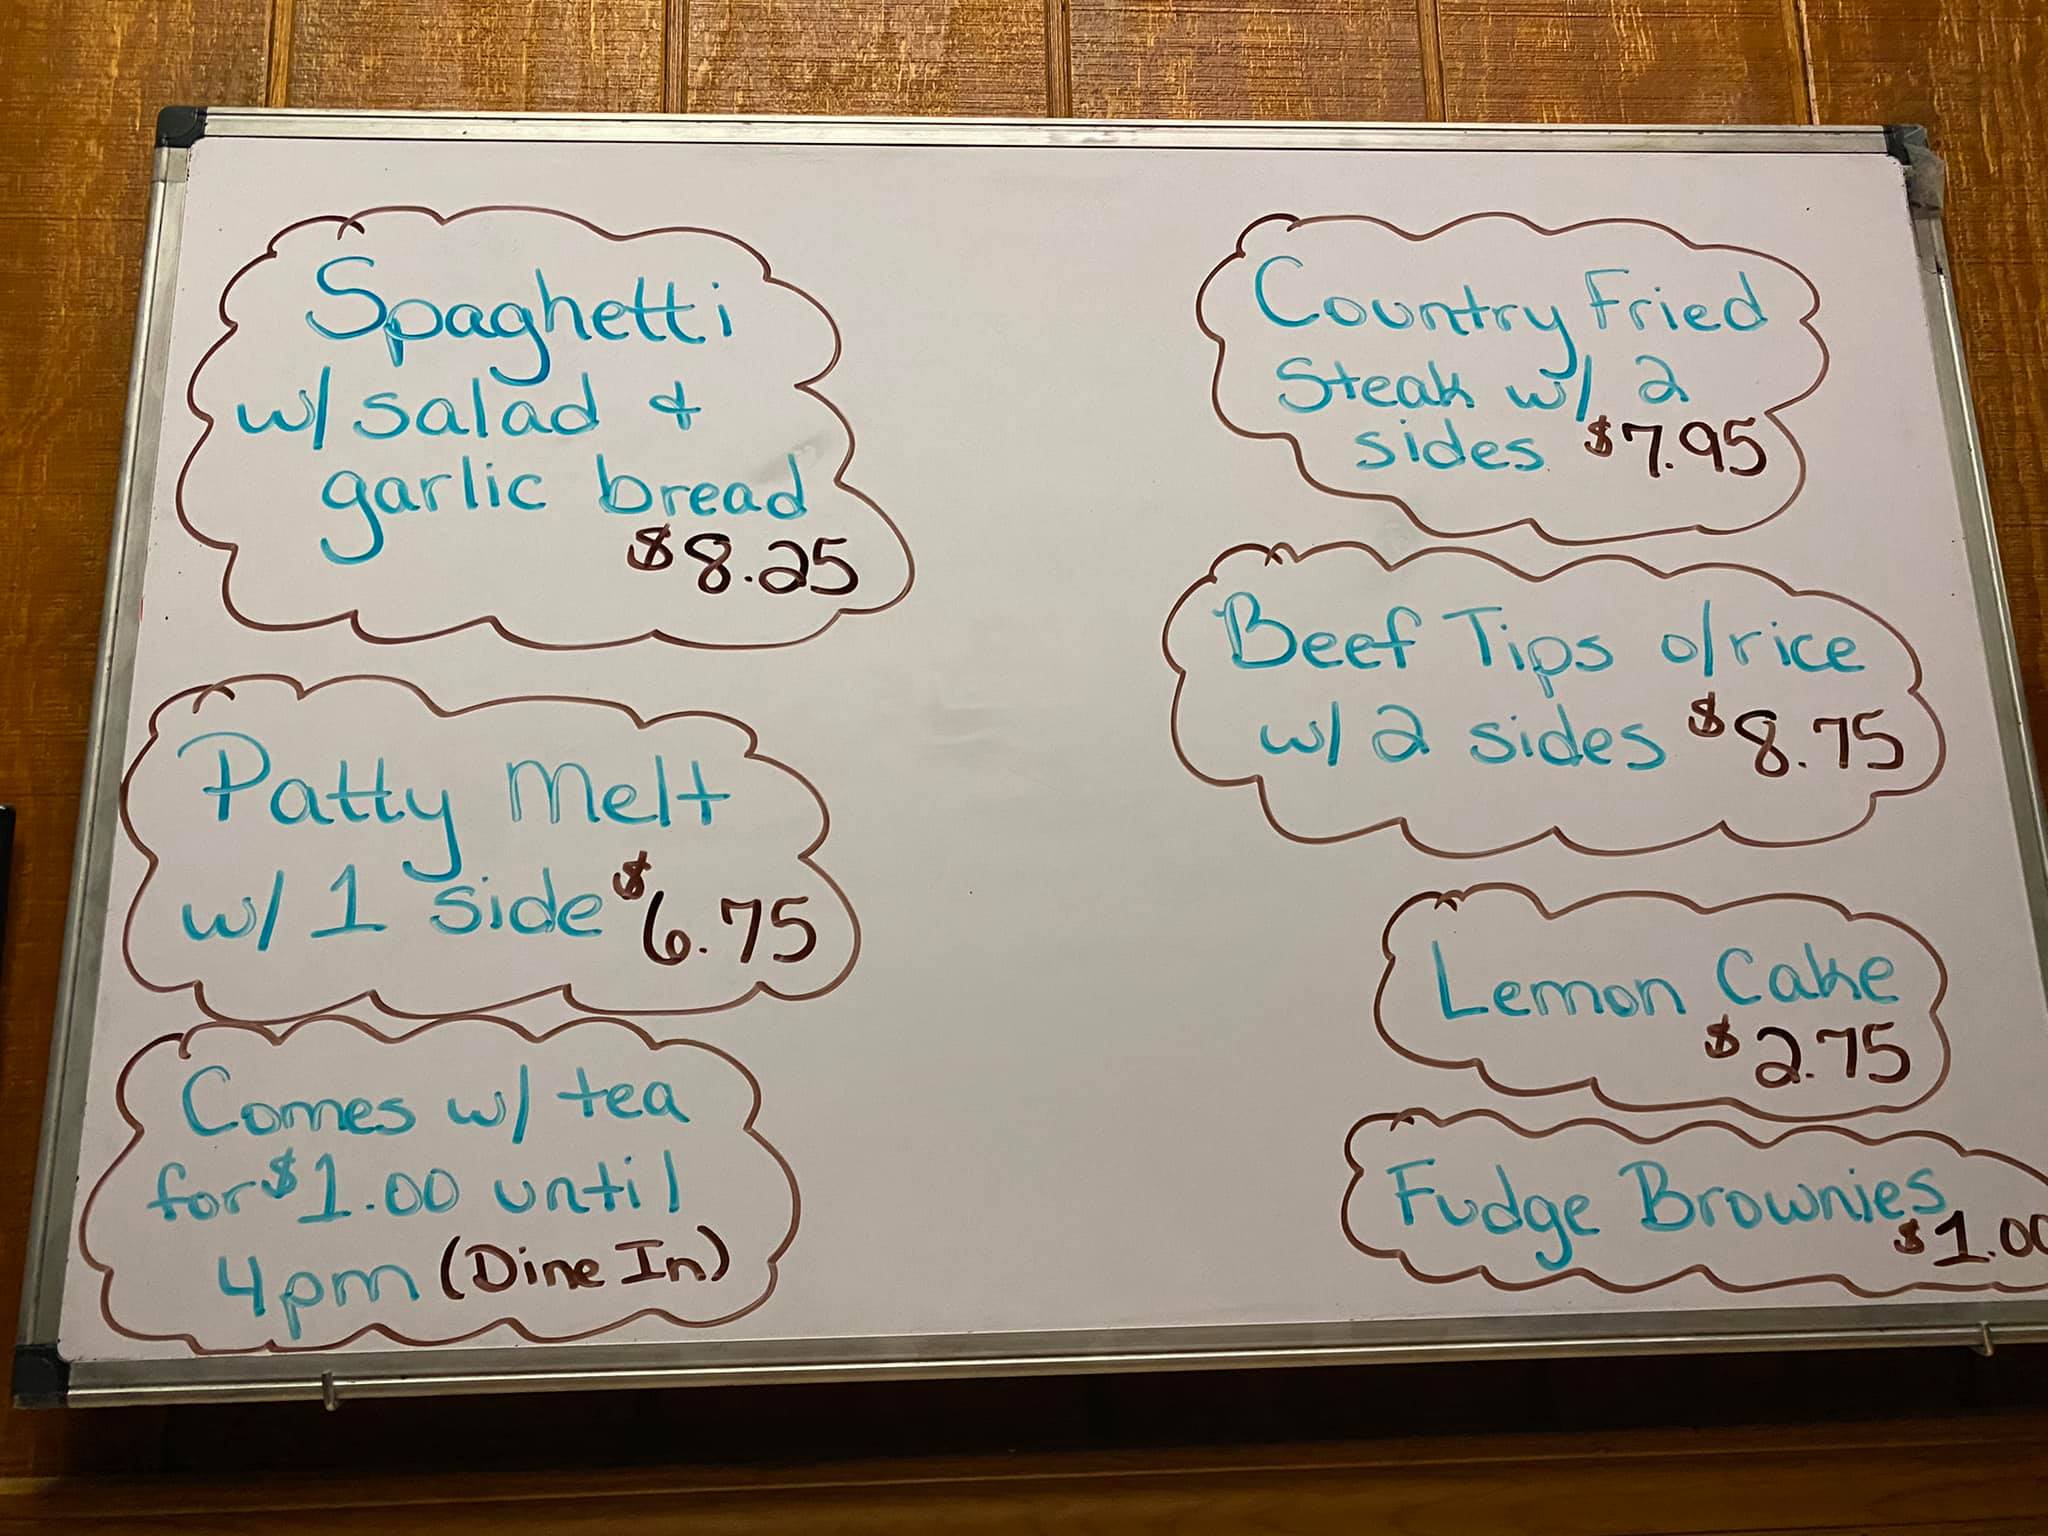 Spaghetti
w/ salad &
garlic bread
$8.25
Patty Melt
w/ 1 side $6.75
Comes w/ tea
for $1.00 until
4pm (Dine In)
Country Fried
Steak w/ 2
sides $7.95
Beef Tips o/rice
w/ 2 sides $8.75
Lemon Cake
$2.75
Fudge Brownies
$1.00